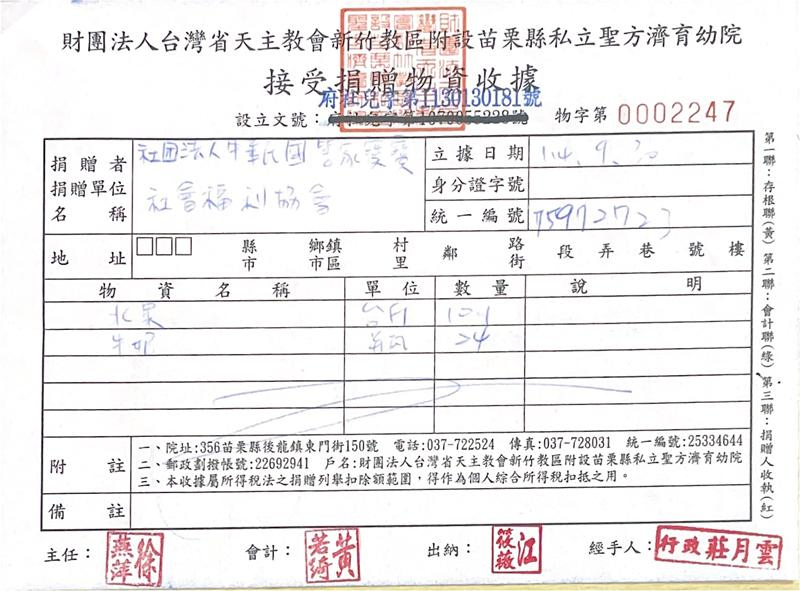 財團法人台灣省天主教會新竹教區附設苗栗縣私立聖方濟育幼院
接受捐贈物資收據
府社兒字第1130130181號
設立文號：
物字第 0002247
捐贈者
捐贈單位
名稱
社團法人中華民國
社會福利協會
立據日期 114. 9. 30
身分證字號
統一編號 75972723
地址
縣市 鄉鎮市區 村里 鄰 路街 段 弄 巷 號 樓
物資名稱 單位 數量 說明
水果 台斤
牛奶 24
附註
一、院址:356苗栗縣後龍鎮東門街150號 電話:037-722524 傳真:037-728031 統一編號:25334644
二、郵政劃撥帳號:22692941 戶名:財團法人台灣省天主教會新竹教區附設苗栗縣私立聖方濟育幼院
三、本收據屬所得稅法之捐贈列舉扣除額範圍，得作為個人綜合所得稅扣抵之用。
備註
主任： 徐燕萍
會計： 黃若綺
出納： 江筱薇
經手人： 行政莊月雲
第一聯：存根聯(黃) 第二聯：會計聯(綠) 第三聯：捐贈人收執(紅)